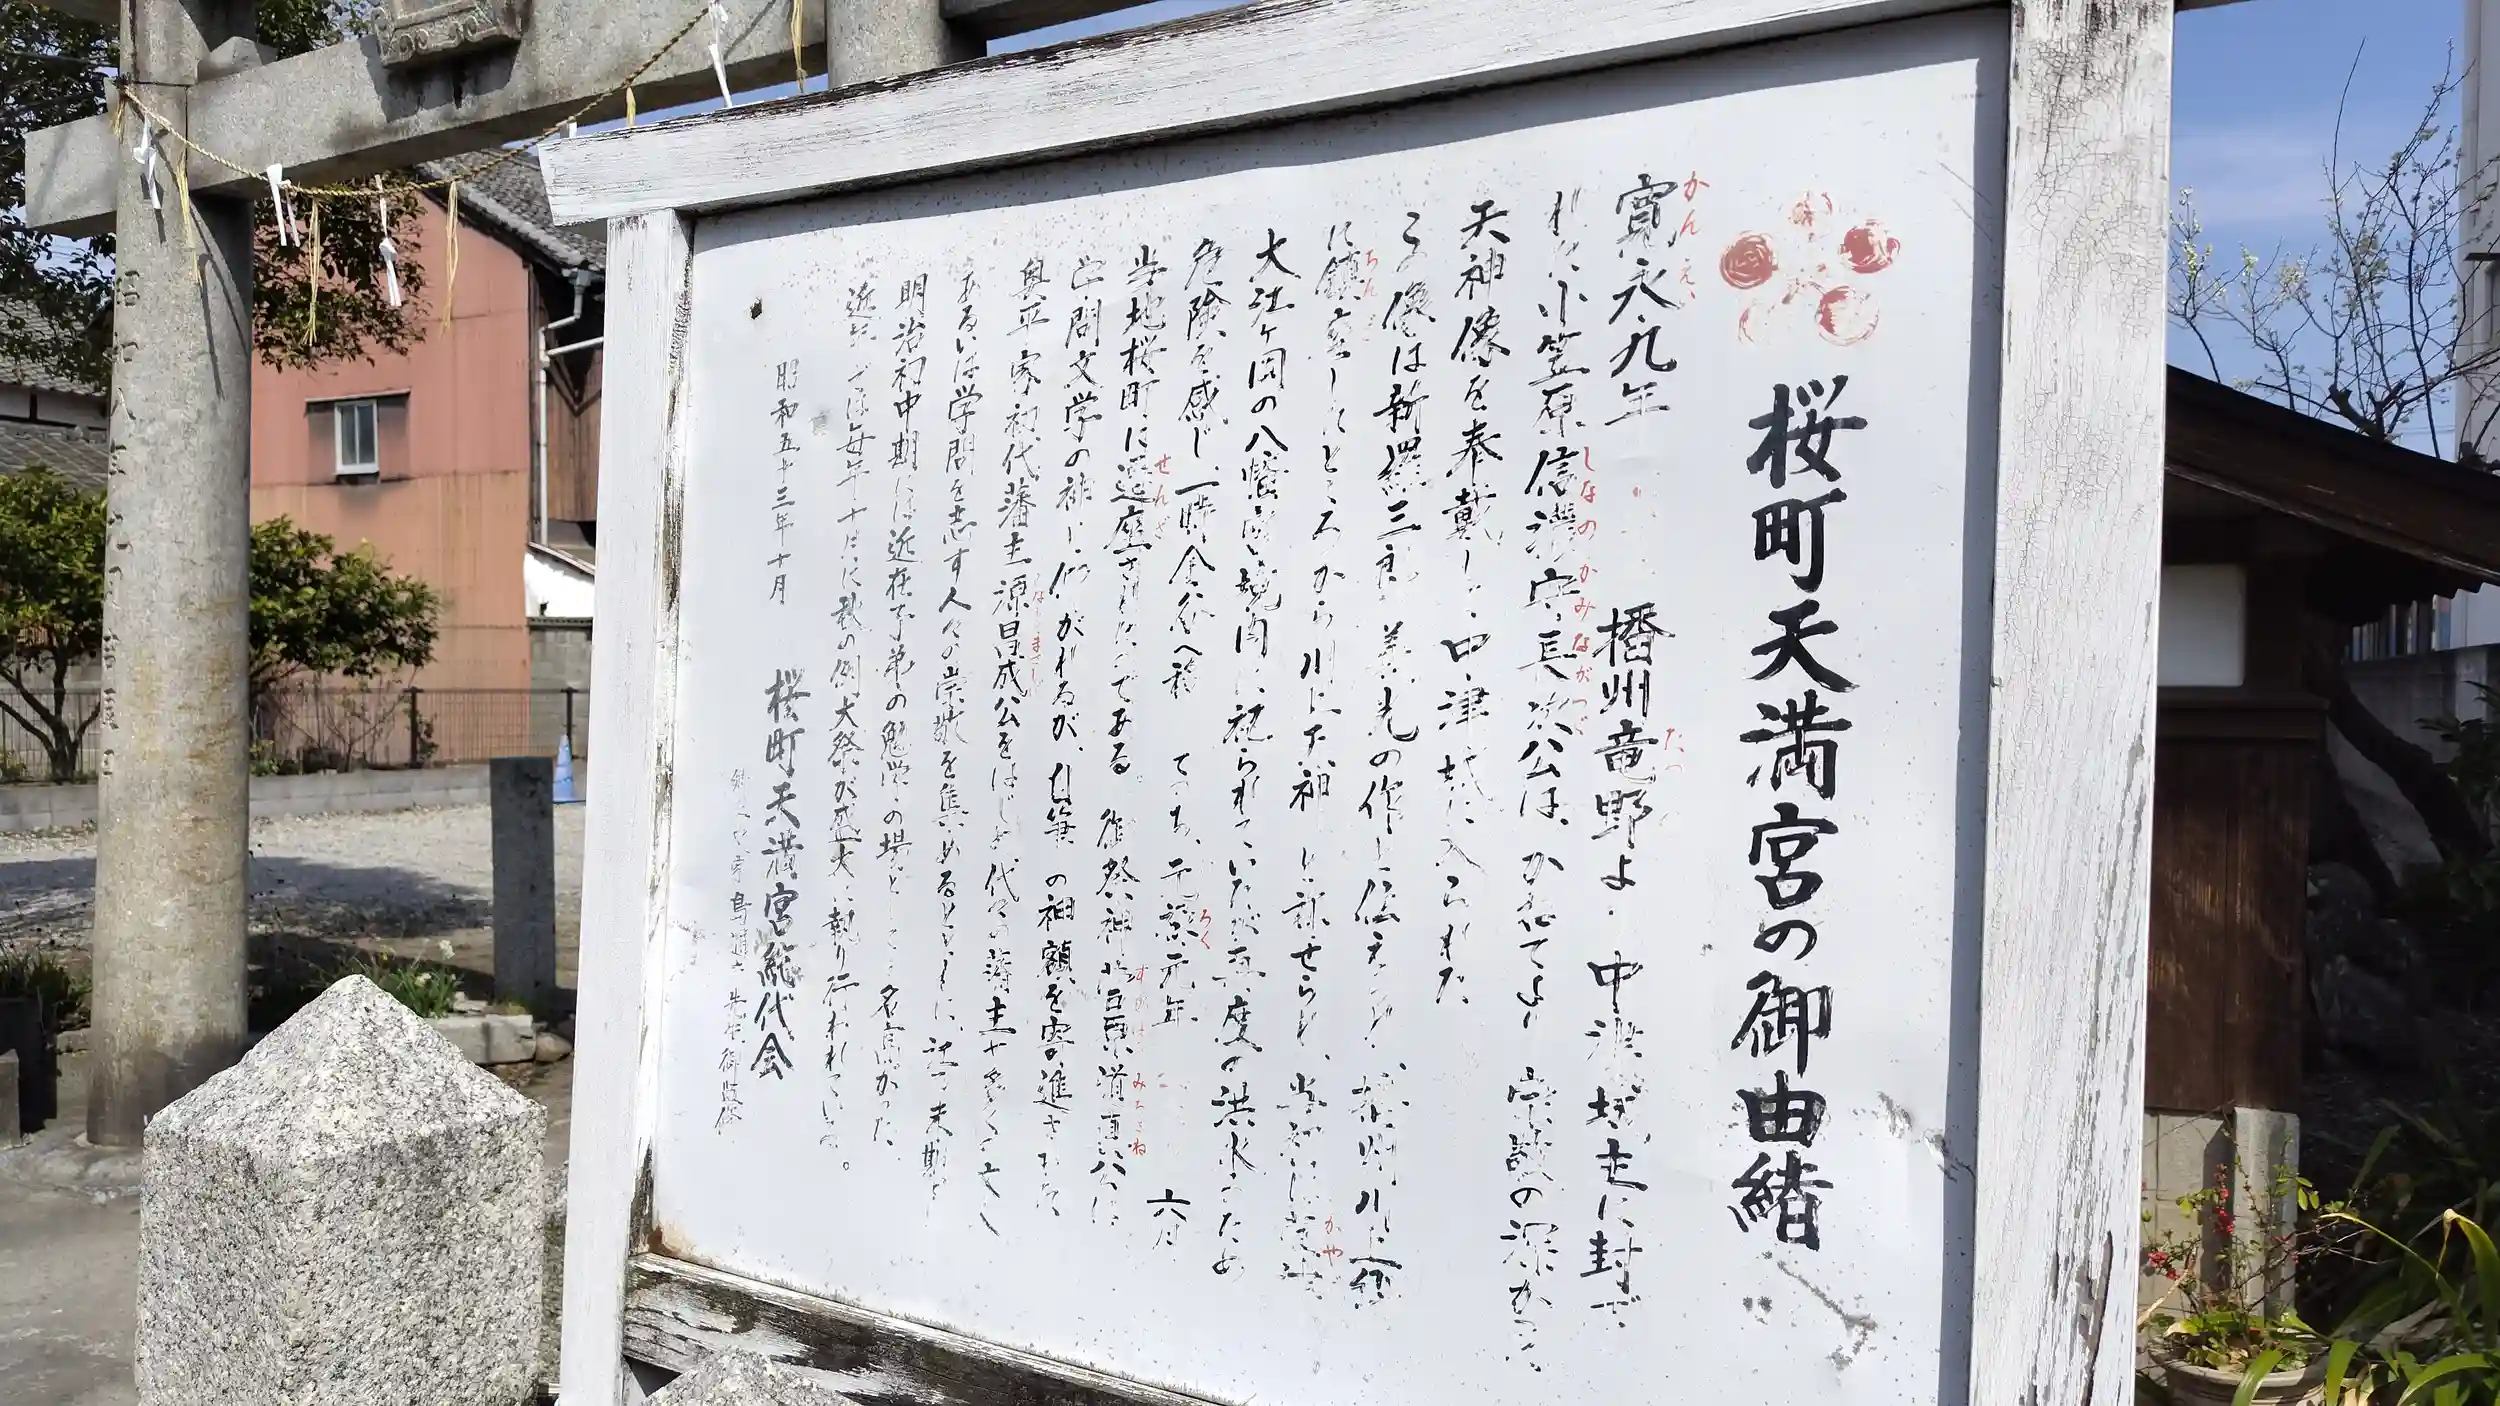 桜町天満宮の御由緒
寛永九年 播州竜野よ 中津城主に封ぜ
かんえい
たつ
れた小笠原信濃守長次公は、かねてより崇敬の深かった
しなのかみながつぐ
天神像を奉戴して中津城に入られた
この像は新羅三郎義光の作と伝え 播州川上
に鎮座したところから川上天神と称せられ、当初は
ちん
かや
大江ヶ岡の八幡宮境内に祀られていたが再度の洪水のため
危険を感じ一時金谷へ移 てのち、元禄元年 六月
ろく
当地桜町に遷座されたのである。御祭神 菅原道真公は
せんざ
みちざね
学問文学の神と仰がれるが、自筆の神額を寄進された
奥平家初代藩主源昌成公をはじめ代々の藩主や多くの文人
まさしげ
あるいは学問を志す人々の崇敬を集めるとともに、 末期
明治初中期には近在子弟の勉学の場として名高かった
近年では毎年十月に秋の例大祭が盛大に執り行われている。
昭和五十三年十月 桜町天満宮総代会
先生御監修